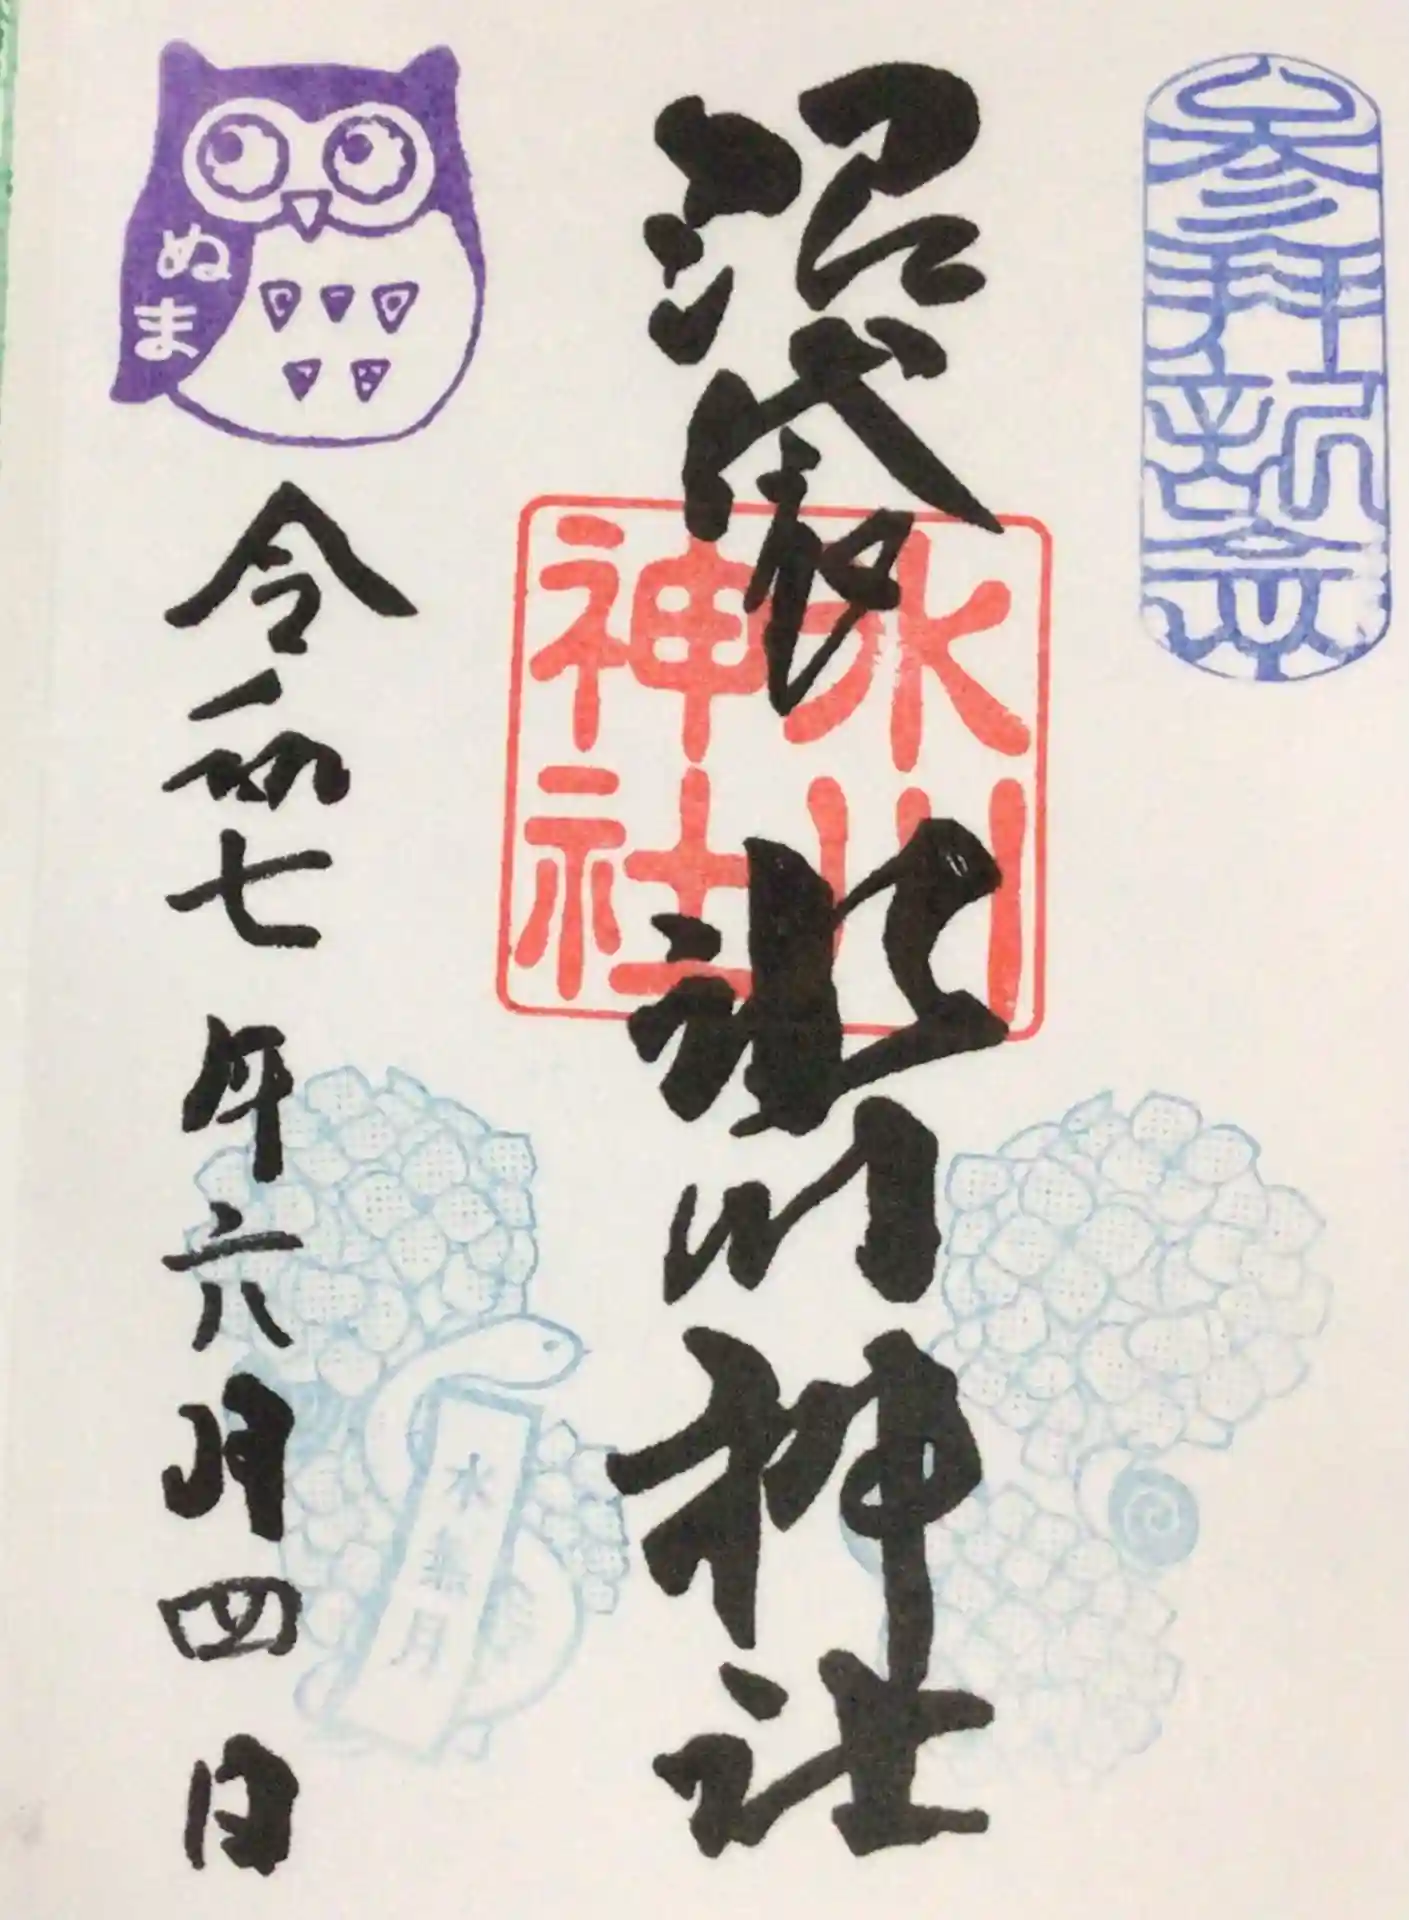 参拝記念
沼袋氷川神社
氷川
神社
ぬま
令和七年六月四日
水無月